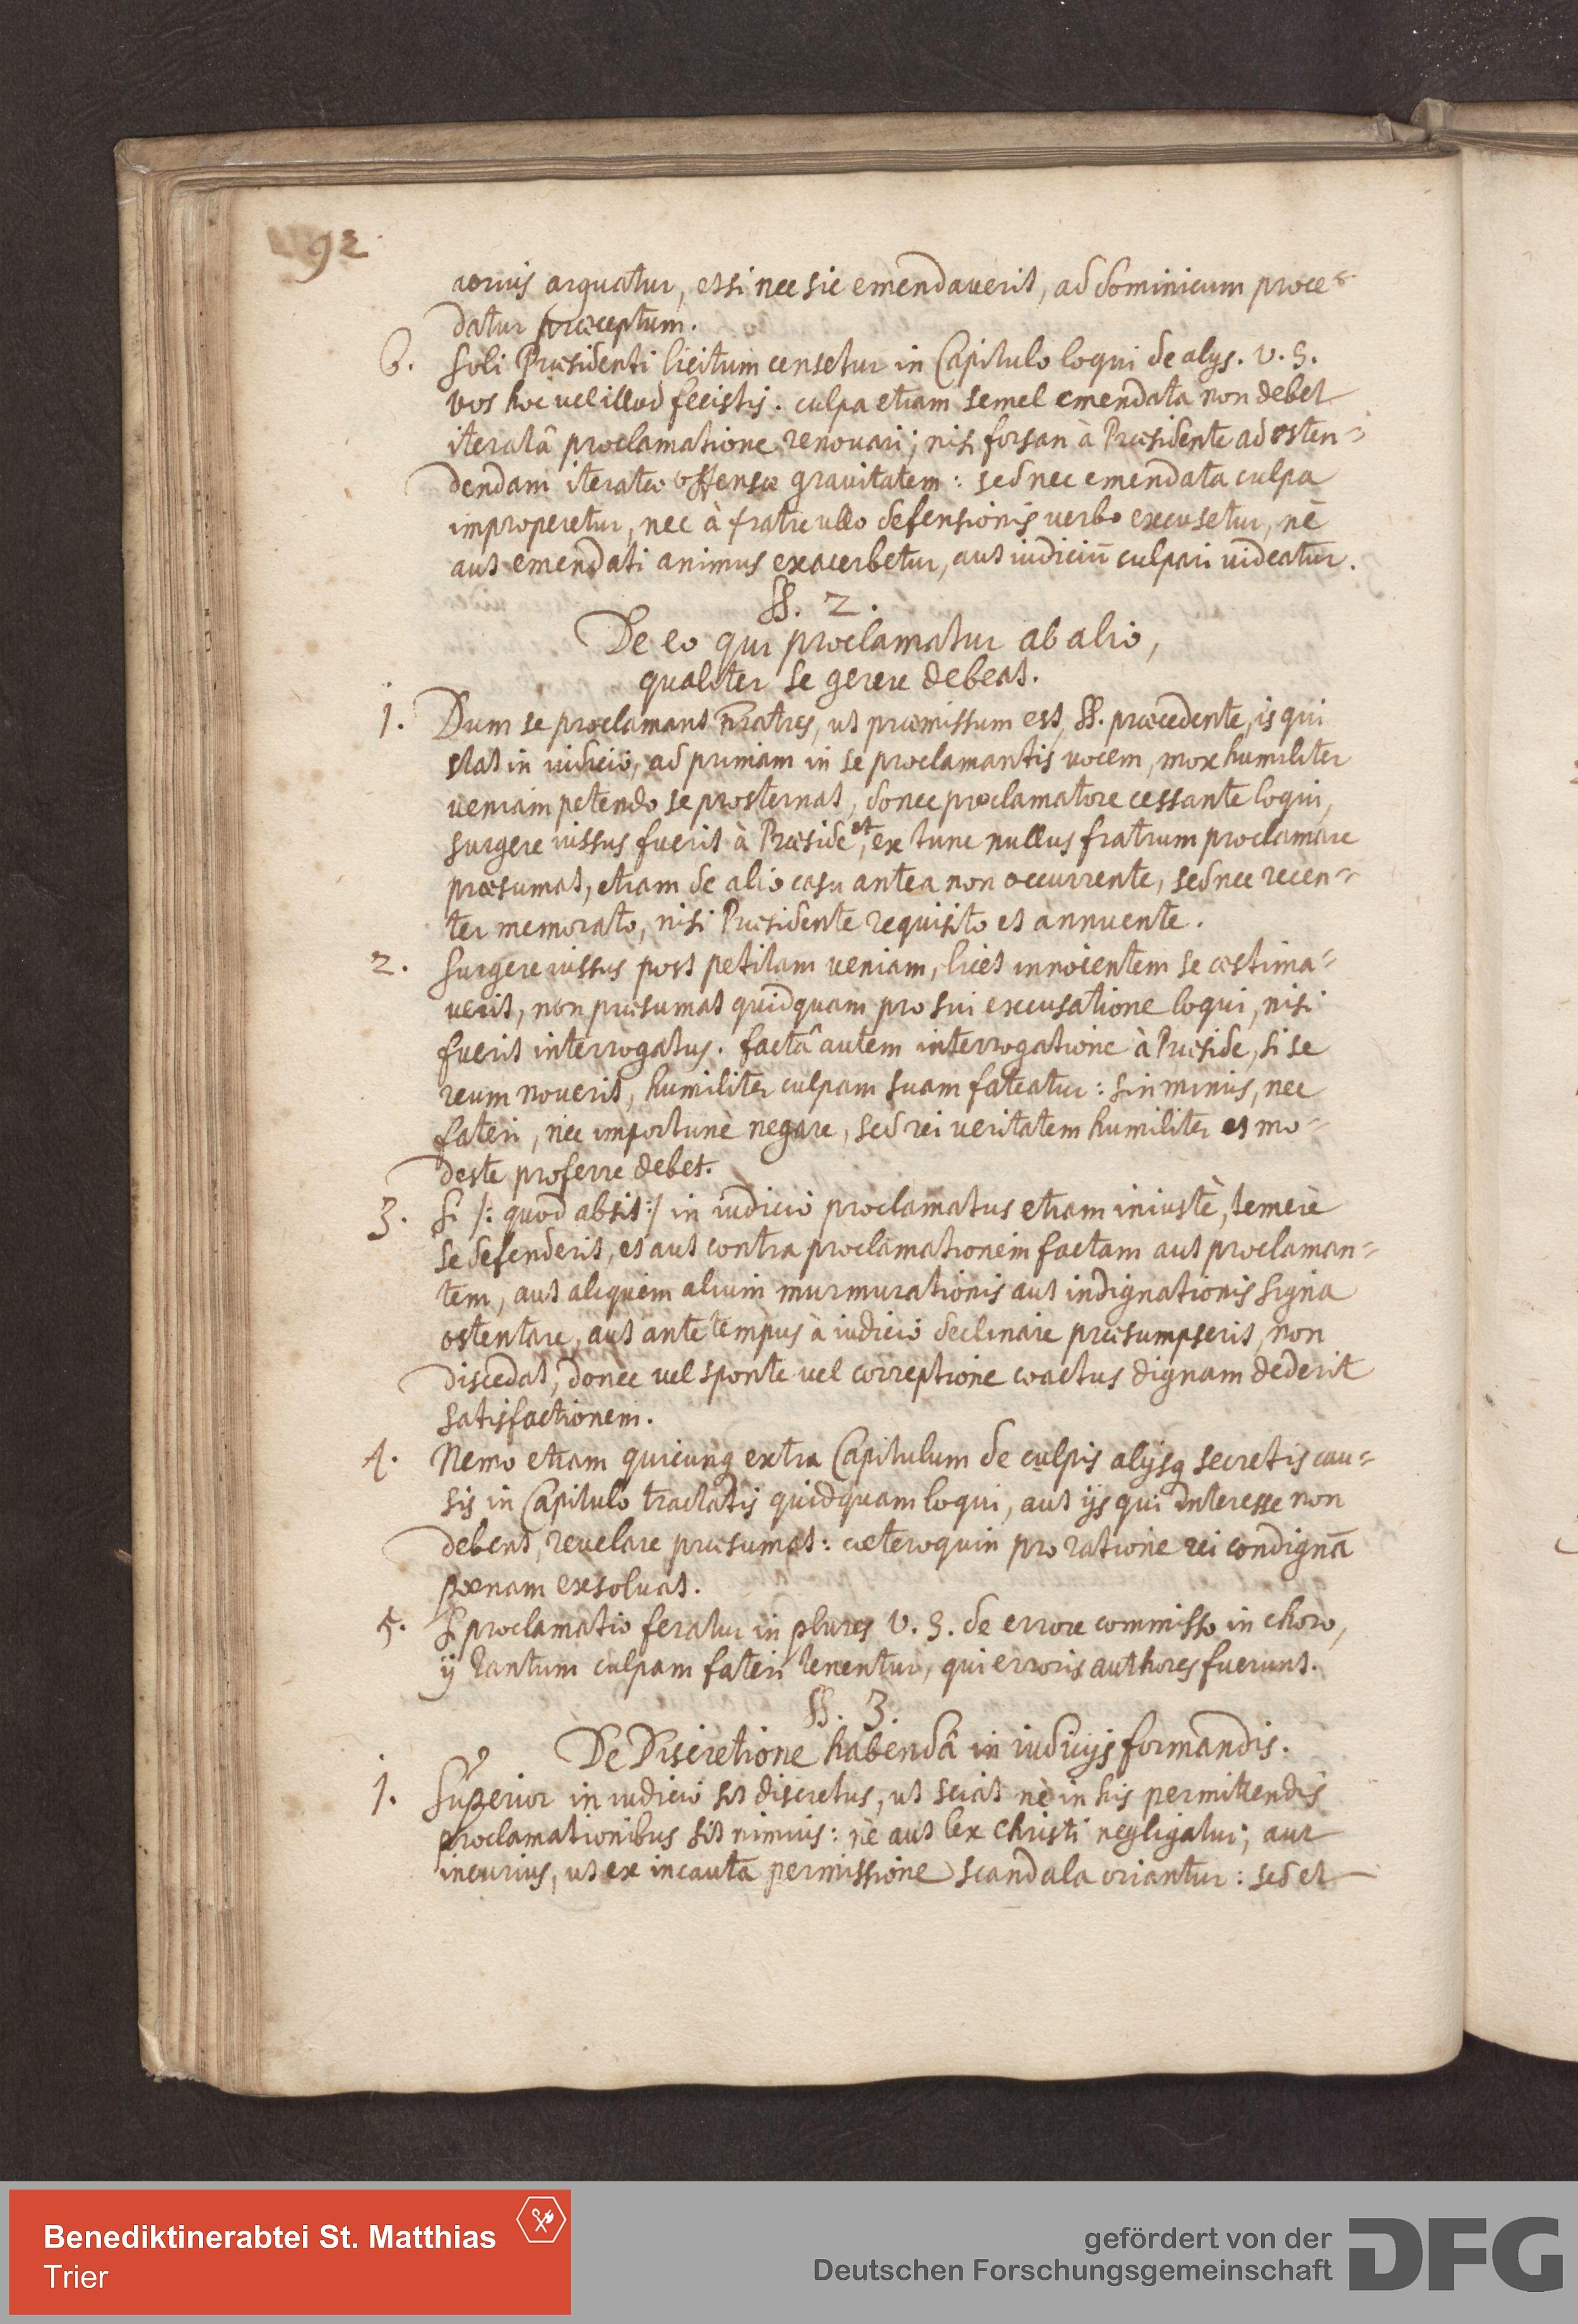 92
acrius arguatur, et si nec sic emendauerit, ad dominicum proce-
datur præceptum.
6. Soli Præsidenti licitum censetur in Capitulo loqui de alijs. v. g.
vos hoc uel illud fecistis. culpa etiam semel emendata non debet
iteratâ proclamatione renouari; nisi forsan à Præsidente ad osten=
dendam iteratæ offensæ grauitatem: sed nec emendata culpa
improperetur, nec à fratre ullo defensionis uerbo excusetur, nè
aut emendati animus exacerbetur, aut iudiciū culpari uideatur.
§§. 2.
De eo qui proclamatur ab alio,
qualiter se gerere debeat.
1. Dum se proclamant Fratres, ut præmissum est §§. præcedente, is qui
stat in iudicio, ad primam in se proclamantis uocem, mox humiliter
ueniam petendo se prosternat, donec proclamatore cessante loqui,
surgere iussus fuerit à Præside, et ex tunc nullus fratrum proclamare
præsumat, etiam de alio casu antea non occurrente, sed nec recen=
ter memorato, nisi Præsidente requisito et annuente.
2. Surgere iussus post petitam ueniam, licet innocentem se æstima=
uerit, non præsumat quidquam pro sui excusatione loqui, nisi
fuerit interrogatus. factâ autem interrogatione à Præside, si se
reum nouerit, humiliter culpam suam fateatur: sin minus, nec
fateri, nec importunè negare, sed rei ueritatem humiliter et mo-
deste proferre debet.
3. Si /: quod absit :/ in iudicio proclamatus etiam iniustè, temerè
se defenderit, et aut contra proclamationem factam aut proclaman=
tem, aut aliquem alium murmurationis aut indignationis signa
ostentare, aut ante tempus à iudicio declinare præsumpserit, non
discedat, donec uel sponte uel correptione coactus dignam dederit
satisfactionem.
4. Nemo etiam quicunq extra Capitulum de culpis alijsq secretis cau=
sis in Capitulo tractatis quidquam loqui, aut ijs qui interesse non
debent, reuelare præsumat: cæteroquin pro ratione rei condignā
pœnam exsoluat.
5. Si proclamatio feratur in plures v. g. de errore commisso in choro,
ij tantum culpam fateri tenentur, qui erroris authores fuerunt.
§§. 3.
De Discretione habendâ in iudicijs formandis.
1. Superior in iudicio sit discretus, ut sciat nè in his permittendis
proclamationibus sit nimius: nè aut lex Christi negligatur; aut
incurius, ut ex incauta permissione scandala oriantur: sed et
Benediktinerabtei St. Matthias
Trier
gefördert von der
Deutschen Forschungsgemeinschaft
DFG